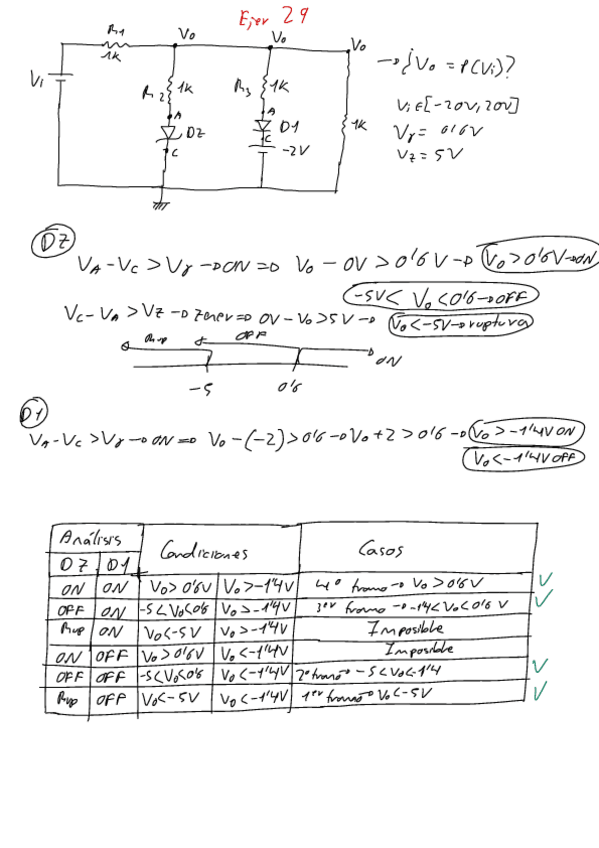 Ejer 29
R1
1K
Vo
Vo
Vo
Vi
R2
1K
R3
1K
1K
A
DZ
C
A
D1
C
-2V
→ ¿Vo = f(Vi)?
Vi ∈ [-20V, 20V]
Vγ = 0'6V
Vz = 5V
DZ
VA - VC > Vγ → ON ⇒ Vo - 0V > 0'6V → Vo > 0'6V → ON
-5V < Vo < 0'6 → OFF
VC - VA > VZ → zener ⇒ 0V - Vo > 5V → Vo < -5V → ruptura
Rup
OFF
ON
-5
0'6
D1
VA - VC > Vγ → ON ⇒ Vo - (-2) > 0'6 → Vo + 2 > 0'6 → Vo > -1'4V ON
Vo < -1'4V OFF
Análisis
Condiciones
Casos
DZ D1
ON ON Vo > 0'6V Vo > -1'4V 4º tramo → Vo > 0'6V ✓
OFF ON -5 < Vo < 0'6 Vo > -1'4V 3er tramo → -1'4 < Vo < 0'6 V ✓
Rup ON Vo < -5V Vo > -1'4V Imposible
ON OFF Vo > 0'6V Vo < -1'4V Imposible
OFF OFF -5 < Vo < 0'6 Vo < -1'4V 2º tramo → -5 < Vo < -1'4 ✓
Rup OFF Vo < -5V Vo < -1'4V 1er tramo → Vo < -5V ✓